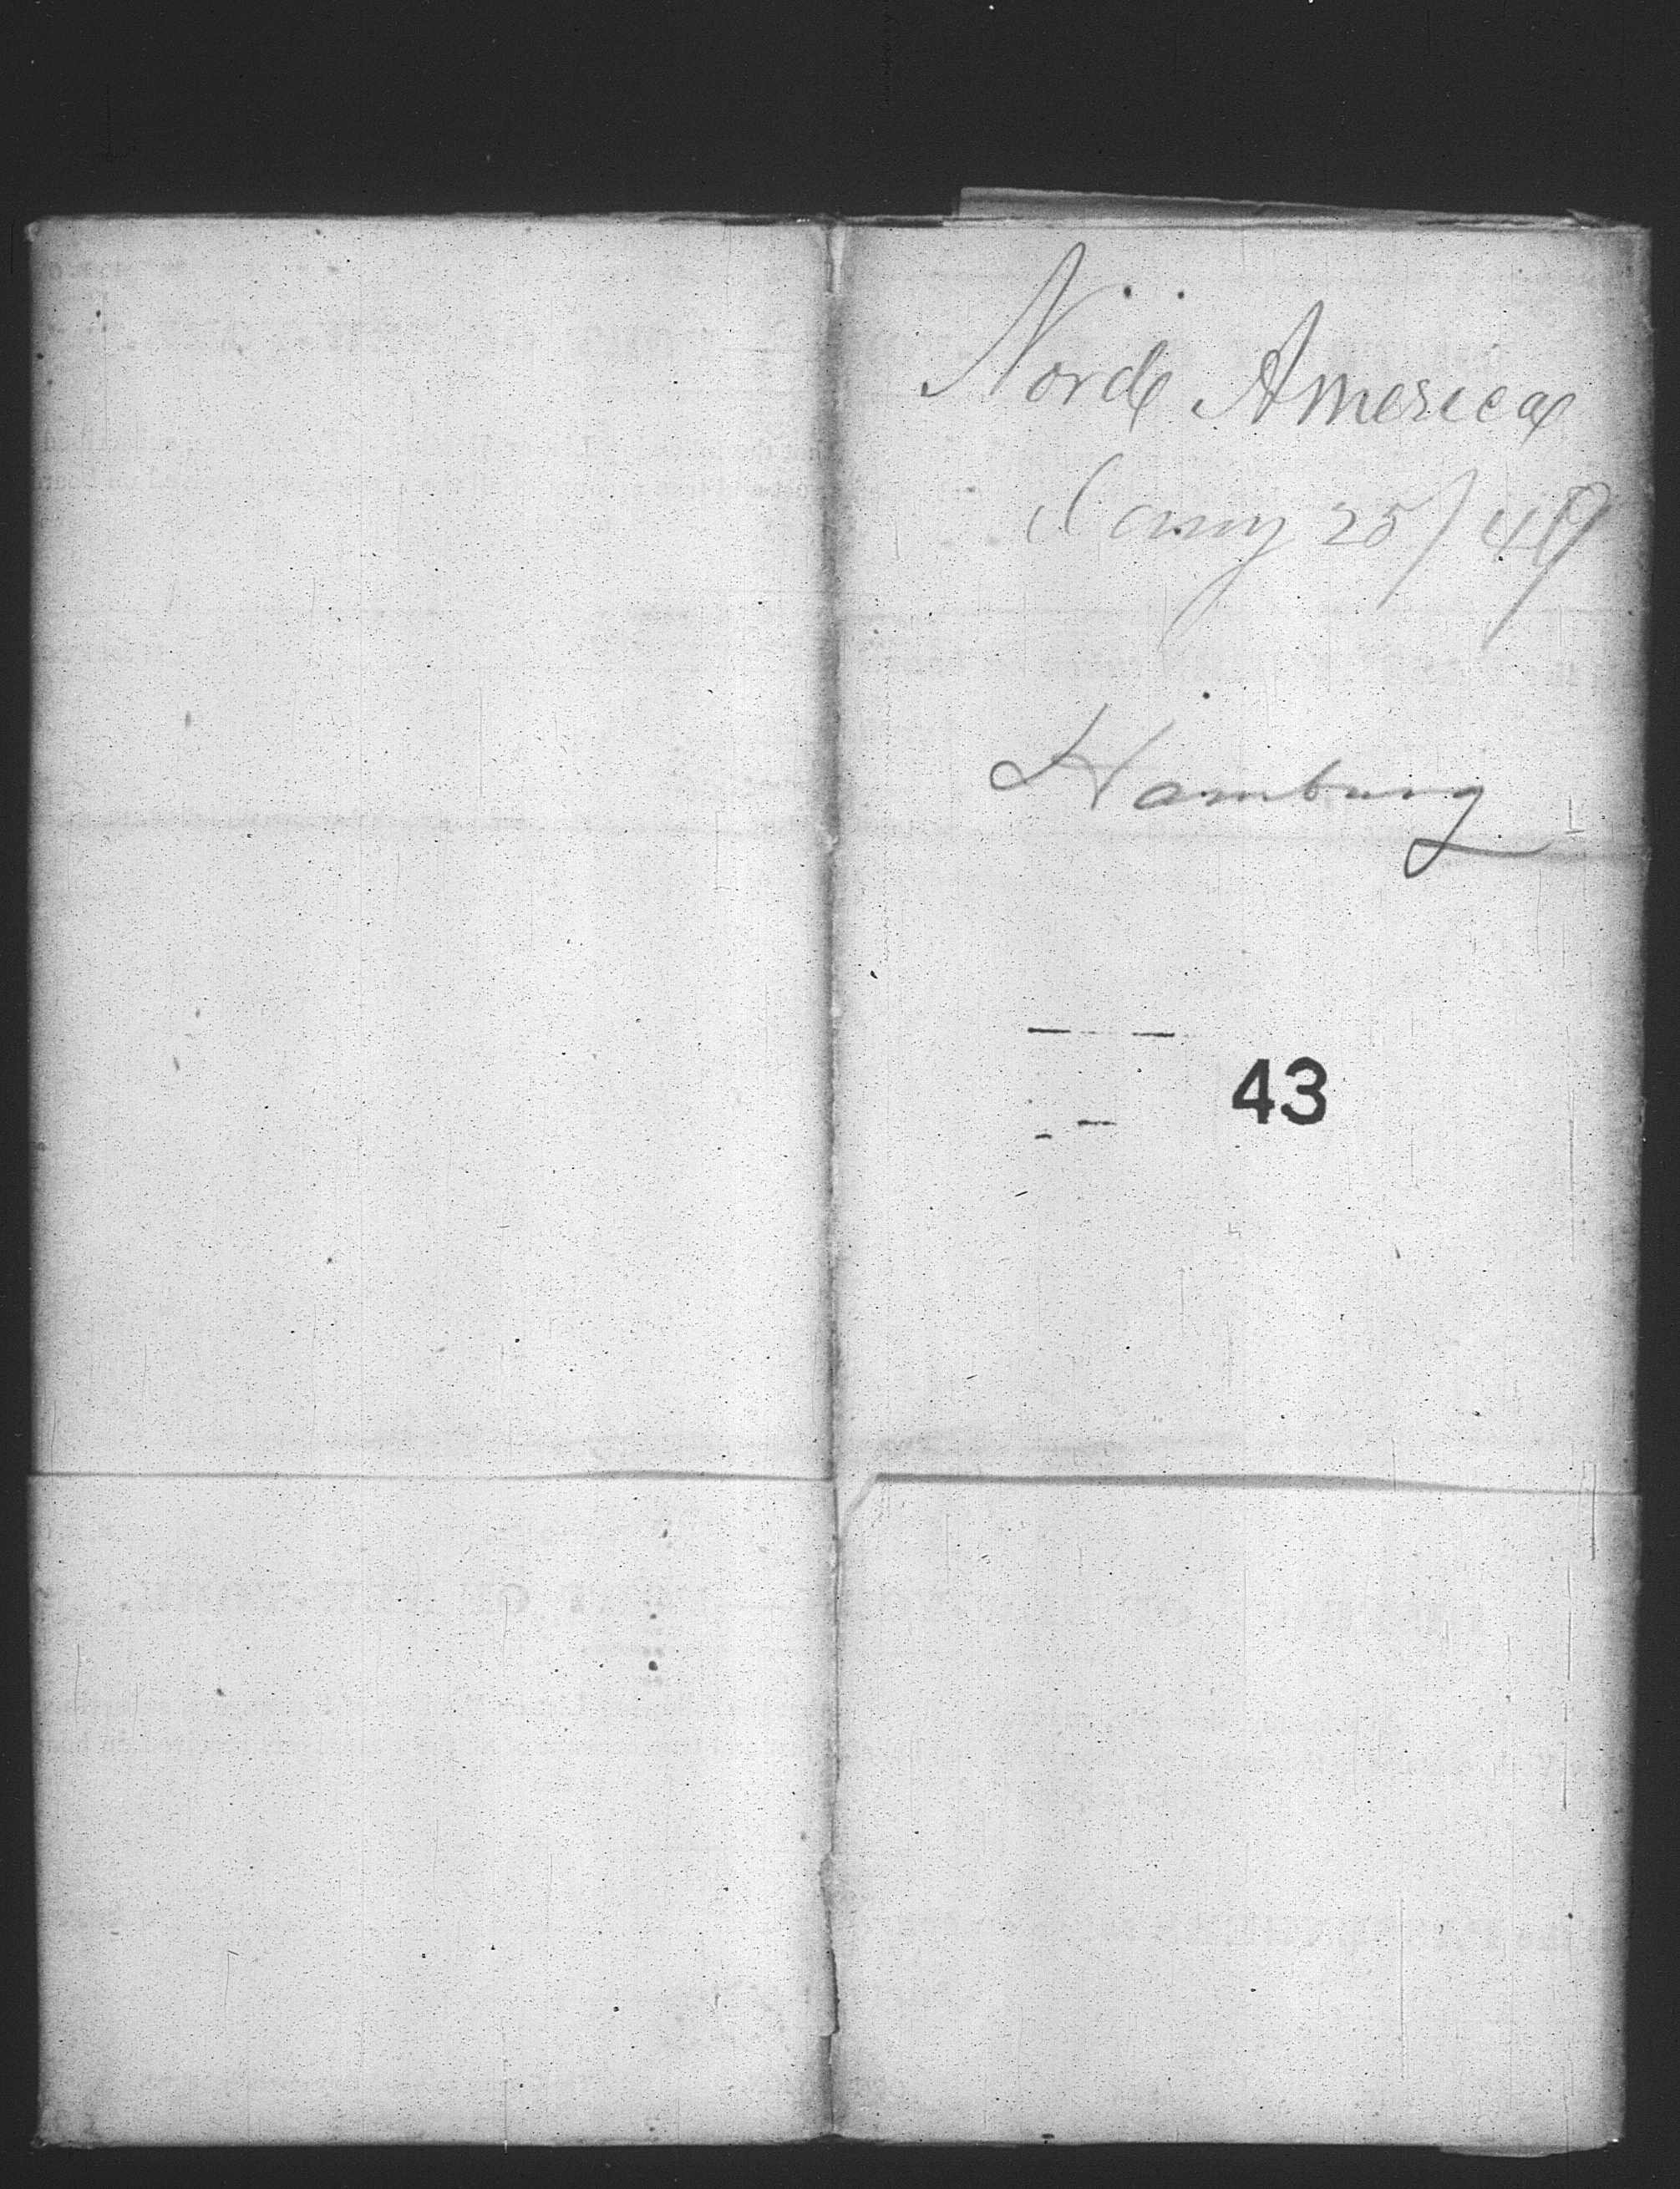 Nord America
Jany 25/49
Hamburg
43